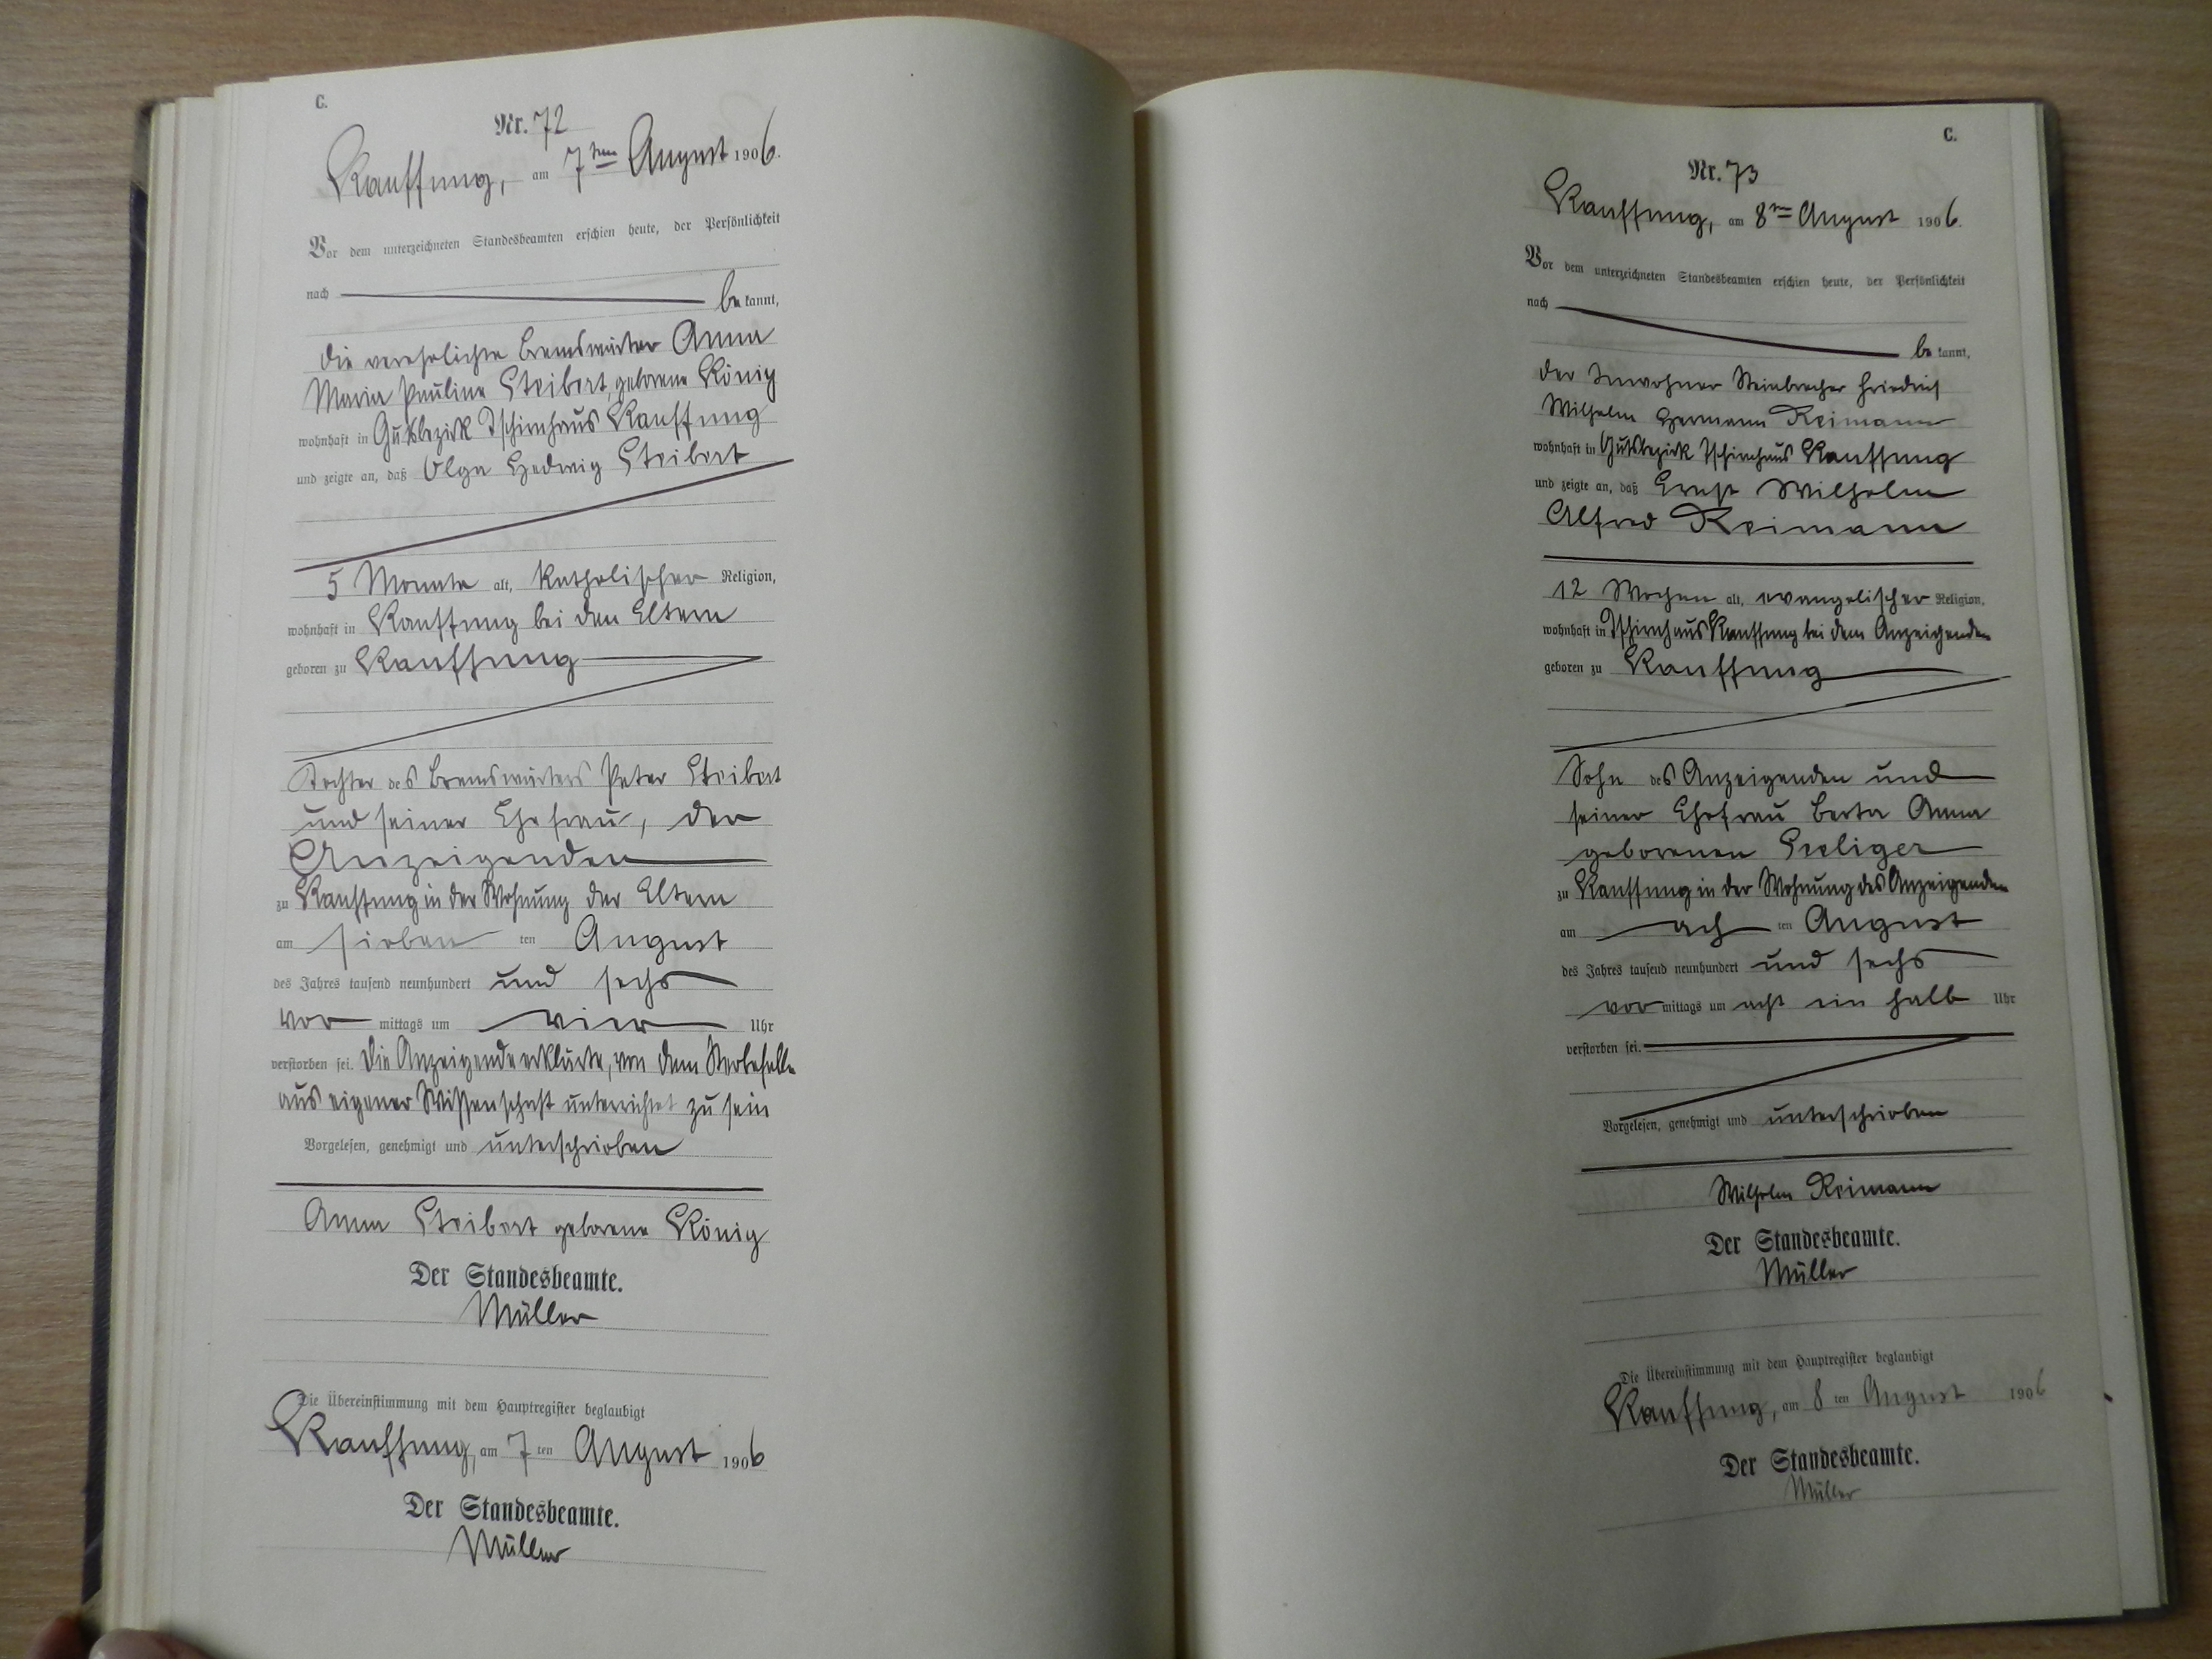 C.
Nr. 72
Kauffung, am 7ten August 1906.
Vor dem unterzeichneten Standesbeamten erschien heute, der Persönlichkeit
nach be kannt,
die verehelichte Bremswärter Anna
Maria Pauline Steibert, geborene König
wohnhaft in Gutsbezirk Tschirnhaus Kauffung
und zeigte an, daß Olga Hedwig Steibert
5 Monate alt, katholischer Religion,
wohnhaft in Kauffung bei den Eltern
geboren zu Kauffung
Tochter des Bremswärters Peter Steibert
und seiner Ehefrau, der
Anzeigenden
zu Kauffung in der Wohnung der Eltern
am sieben ten August
des Jahres tausend neunhundert und sechs
vor mittags um vier Uhr
verstorben sei. Die Anzeigende erklärte, von dem Sterbefalle
aus eigener Wissenschaft unterrichtet zu sein
Vorgelesen, genehmigt und unterschrieben
Anna Steibert geborene König
Der Standesbeamte.
Müller
Die Übereinstimmung mit dem Hauptregister beglaubigt
Kauffung, am 7 ten August 1906
Der Standesbeamte.
Müller
C.
Nr. 73
Kauffung, am 8ten August 1906.
Vor dem unterzeichneten Standesbeamten erschien heute, der Persönlichkeit
nach be kannt,
der Inwohner Steinbrecher Friedrich
Wilhelm Hermann Reimann
wohnhaft in Gutsbezirk Tschirnhaus Kauffung
und zeigte an, daß Ernst Wilhelm
Alfred Reimann
12 Wochen alt, evangelischer Religion,
wohnhaft in Tschirnhaus Kauffung bei dem Anzeigenden
geboren zu Kauffung
Sohn des Anzeigenden und
seiner Ehefrau Berta Anna
geborenen Seeliger
zu Kauffung in der Wohnung des Anzeigenden
am ach ten August
des Jahres tausend neunhundert und sechs
vor mittags um acht ein halb Uhr
verstorben sei.
Vorgelesen, genehmigt und unterschrieben
Wilhelm Reimann
Der Standesbeamte.
Müller
Die Übereinstimmung mit dem Hauptregister beglaubigt
Kauffung, am 8 ten August 1906
Der Standesbeamte.
Müller